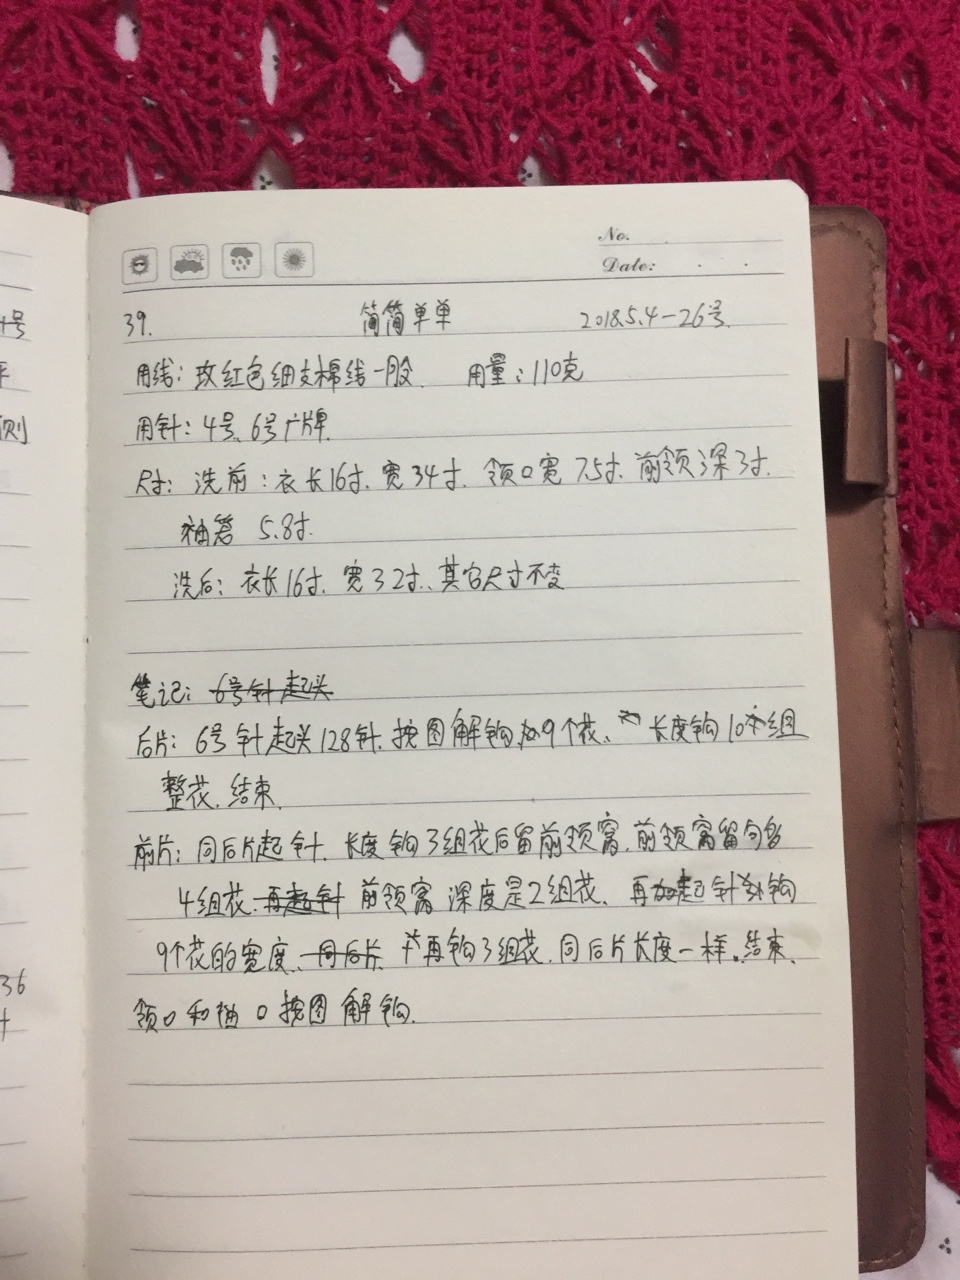 No.
Date: . .
39. 简简单单 2018.5.4—26号
用线：玫红色细支棉线一股. 用量：110克
用针：4号、6号广牌.
尺寸：洗前：衣长16寸. 宽34寸. 领口宽7.5寸. 前领深3寸.
袖笼 5.8寸.
洗后：衣长16寸. 宽32寸、其它尺寸不变
笔记：6号针起头
后片：6号针起头128针. 按图解钩 9个花、长度钩10组
整花. 结束.
前片：同后片起针. 长度钩3组花后留前领窝. 前领窝留
4组花. 再起针 前领窝 深度是2组花、再起针 钩
9个花的宽度、同后片. 再钩3组花. 同后片长度一样. 结束.
领口和袖口按图解钩.
号
则
36